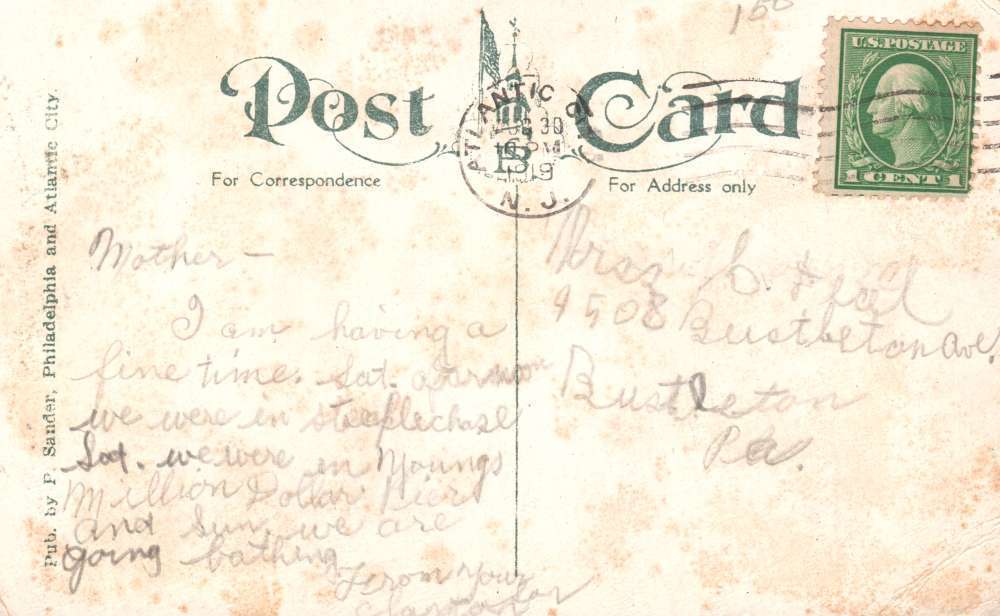 Post Card
For Correspondence
For Address only
ATLANTIC
30
PM
1919
N. J.
U.S. POSTAGE
1 CENT 1
150
Pub. by P. Sander, Philadelphia and Atlantic City.
Mother —
I am having a
fine time. Sat. afternoon
we were in steeplechase
Sat. we were in Youngs
Million Dollar Pier
and Sun. we are
going bathing
From your
Mrs.
9508 Bustleton Ave.
Bustleton
Pa.